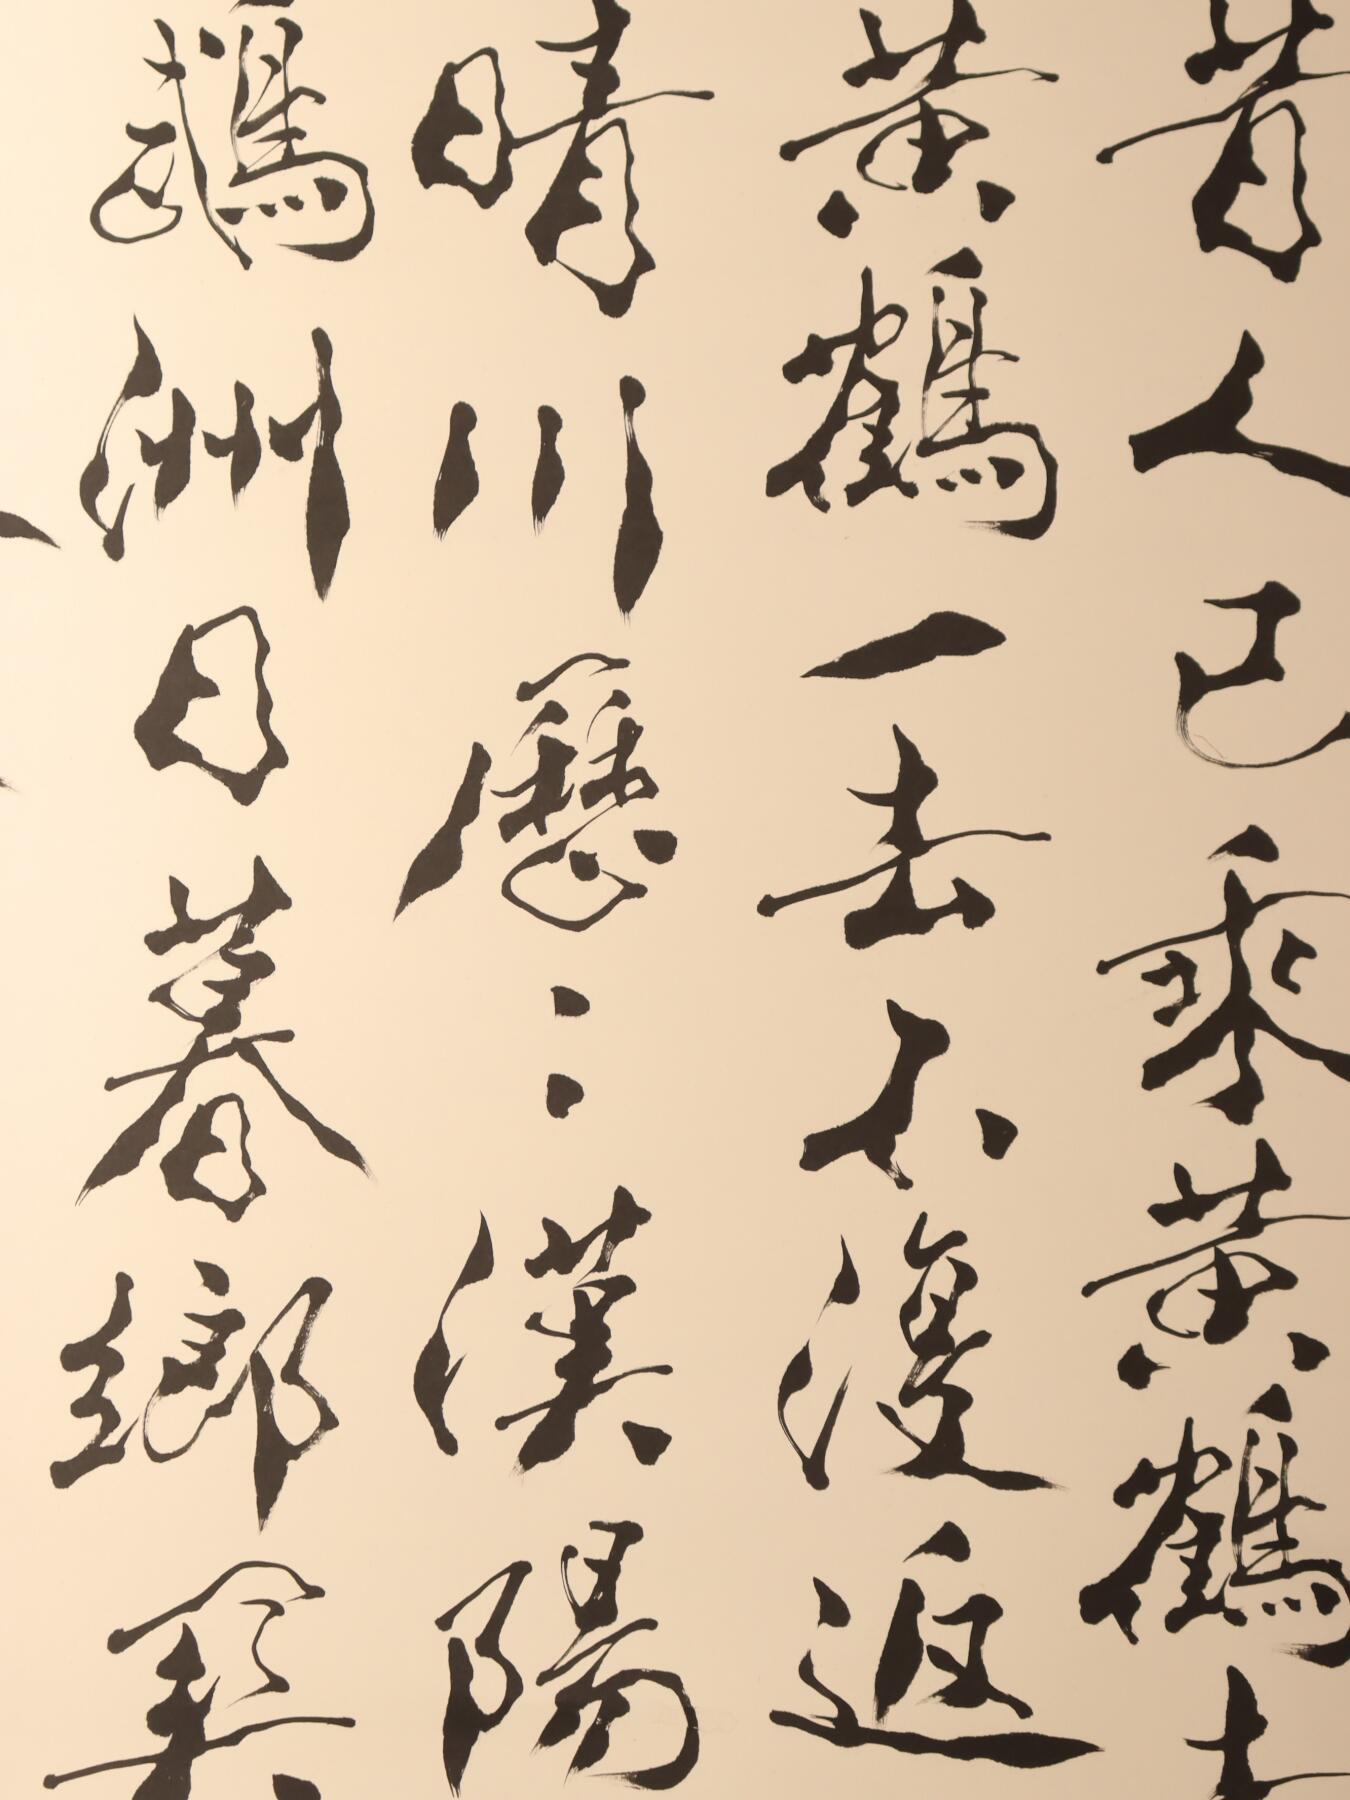 昔人已乘黃鶴去
黃鶴一去不復返
晴川歷〻漢陽
鵡洲日暮鄉關